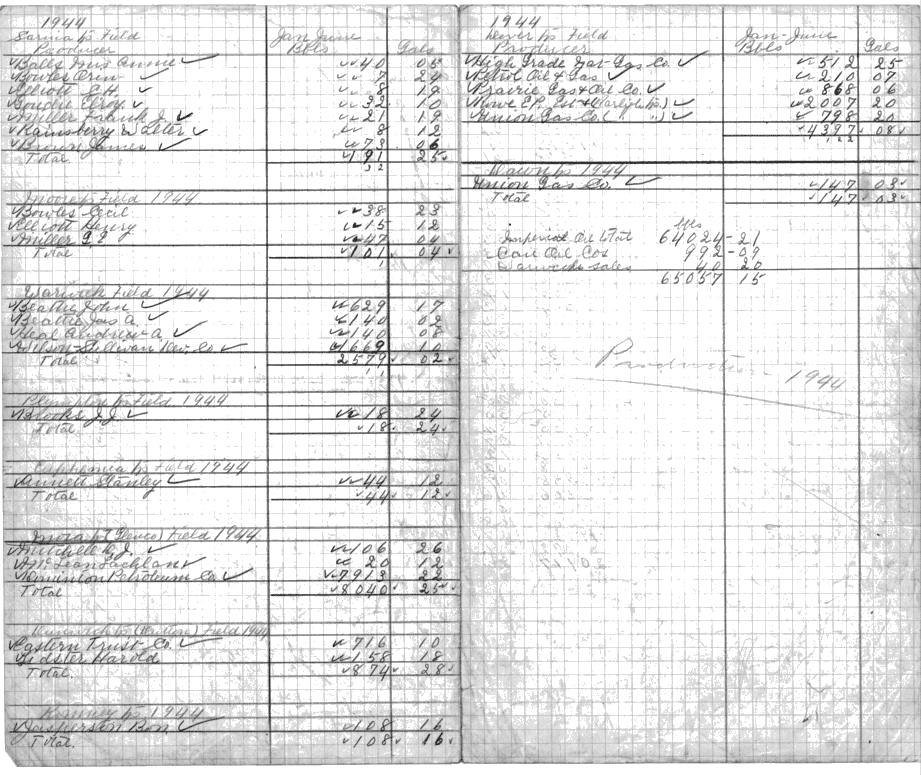 1944
Sarnia Tp Field Jan-June
Producer Bbls Gals
Balls Mrs Annie 40 05
Bowles Orin 7 24
Elliott C.H. 8 19
Goudie Elroy 32 10
Miller Frank J. 21 19
Rainsberry Walter 8 12
Brown James 73 06
Total 191 25
Moore Tp Field 1944
Bowles Cecil 38 23
Elliott Henry 15 12
Miller 47 04
Total 101 04
Warwick Field 1944
Beattie John 629 17
Beattie Jas A. 140 02
Heal Andrew A 140 08
1669 10
Total 2579 02
Plympton Tp Field 1944
Brooks J.J. 18 24
Total 18 24
Euphemia Tp Field 1944
Annett Stanley 44 12
Total 44 12
Mosa Tp (Glenco) Field 1944
Mitchell J. 106 26
McLean Lachlan 20 12
Dominion Petroleum Co 7913 22
Total 8040 25
Dunwich Tp (Dutton) Field 1944
Eastern Trust Co. 716 10
Bidster Harold 158 18
Total. 874 28
Romney Tp 1944
Jasperson Bon 108 16
Total. 108 16
1944
Dover Tp Field Jan-June
Producer Bbls Gals
High Grade Nat Gas Co. 512 25
Petrol Oil & Gas 210 07
Prairie Gas & Oil Co. 868 06
Rowe E.P. Est 2007 20
Union Gas Co. ( " " ) 798 20
4397 08
Dawn Tp 1944
Union Gas Co. 147 03
Total 147 03
bbls
Imperial Oil Stat 64024-21
Can Oil Cos 992-09
Warwick sales 40 20
65057 15
Production 1944